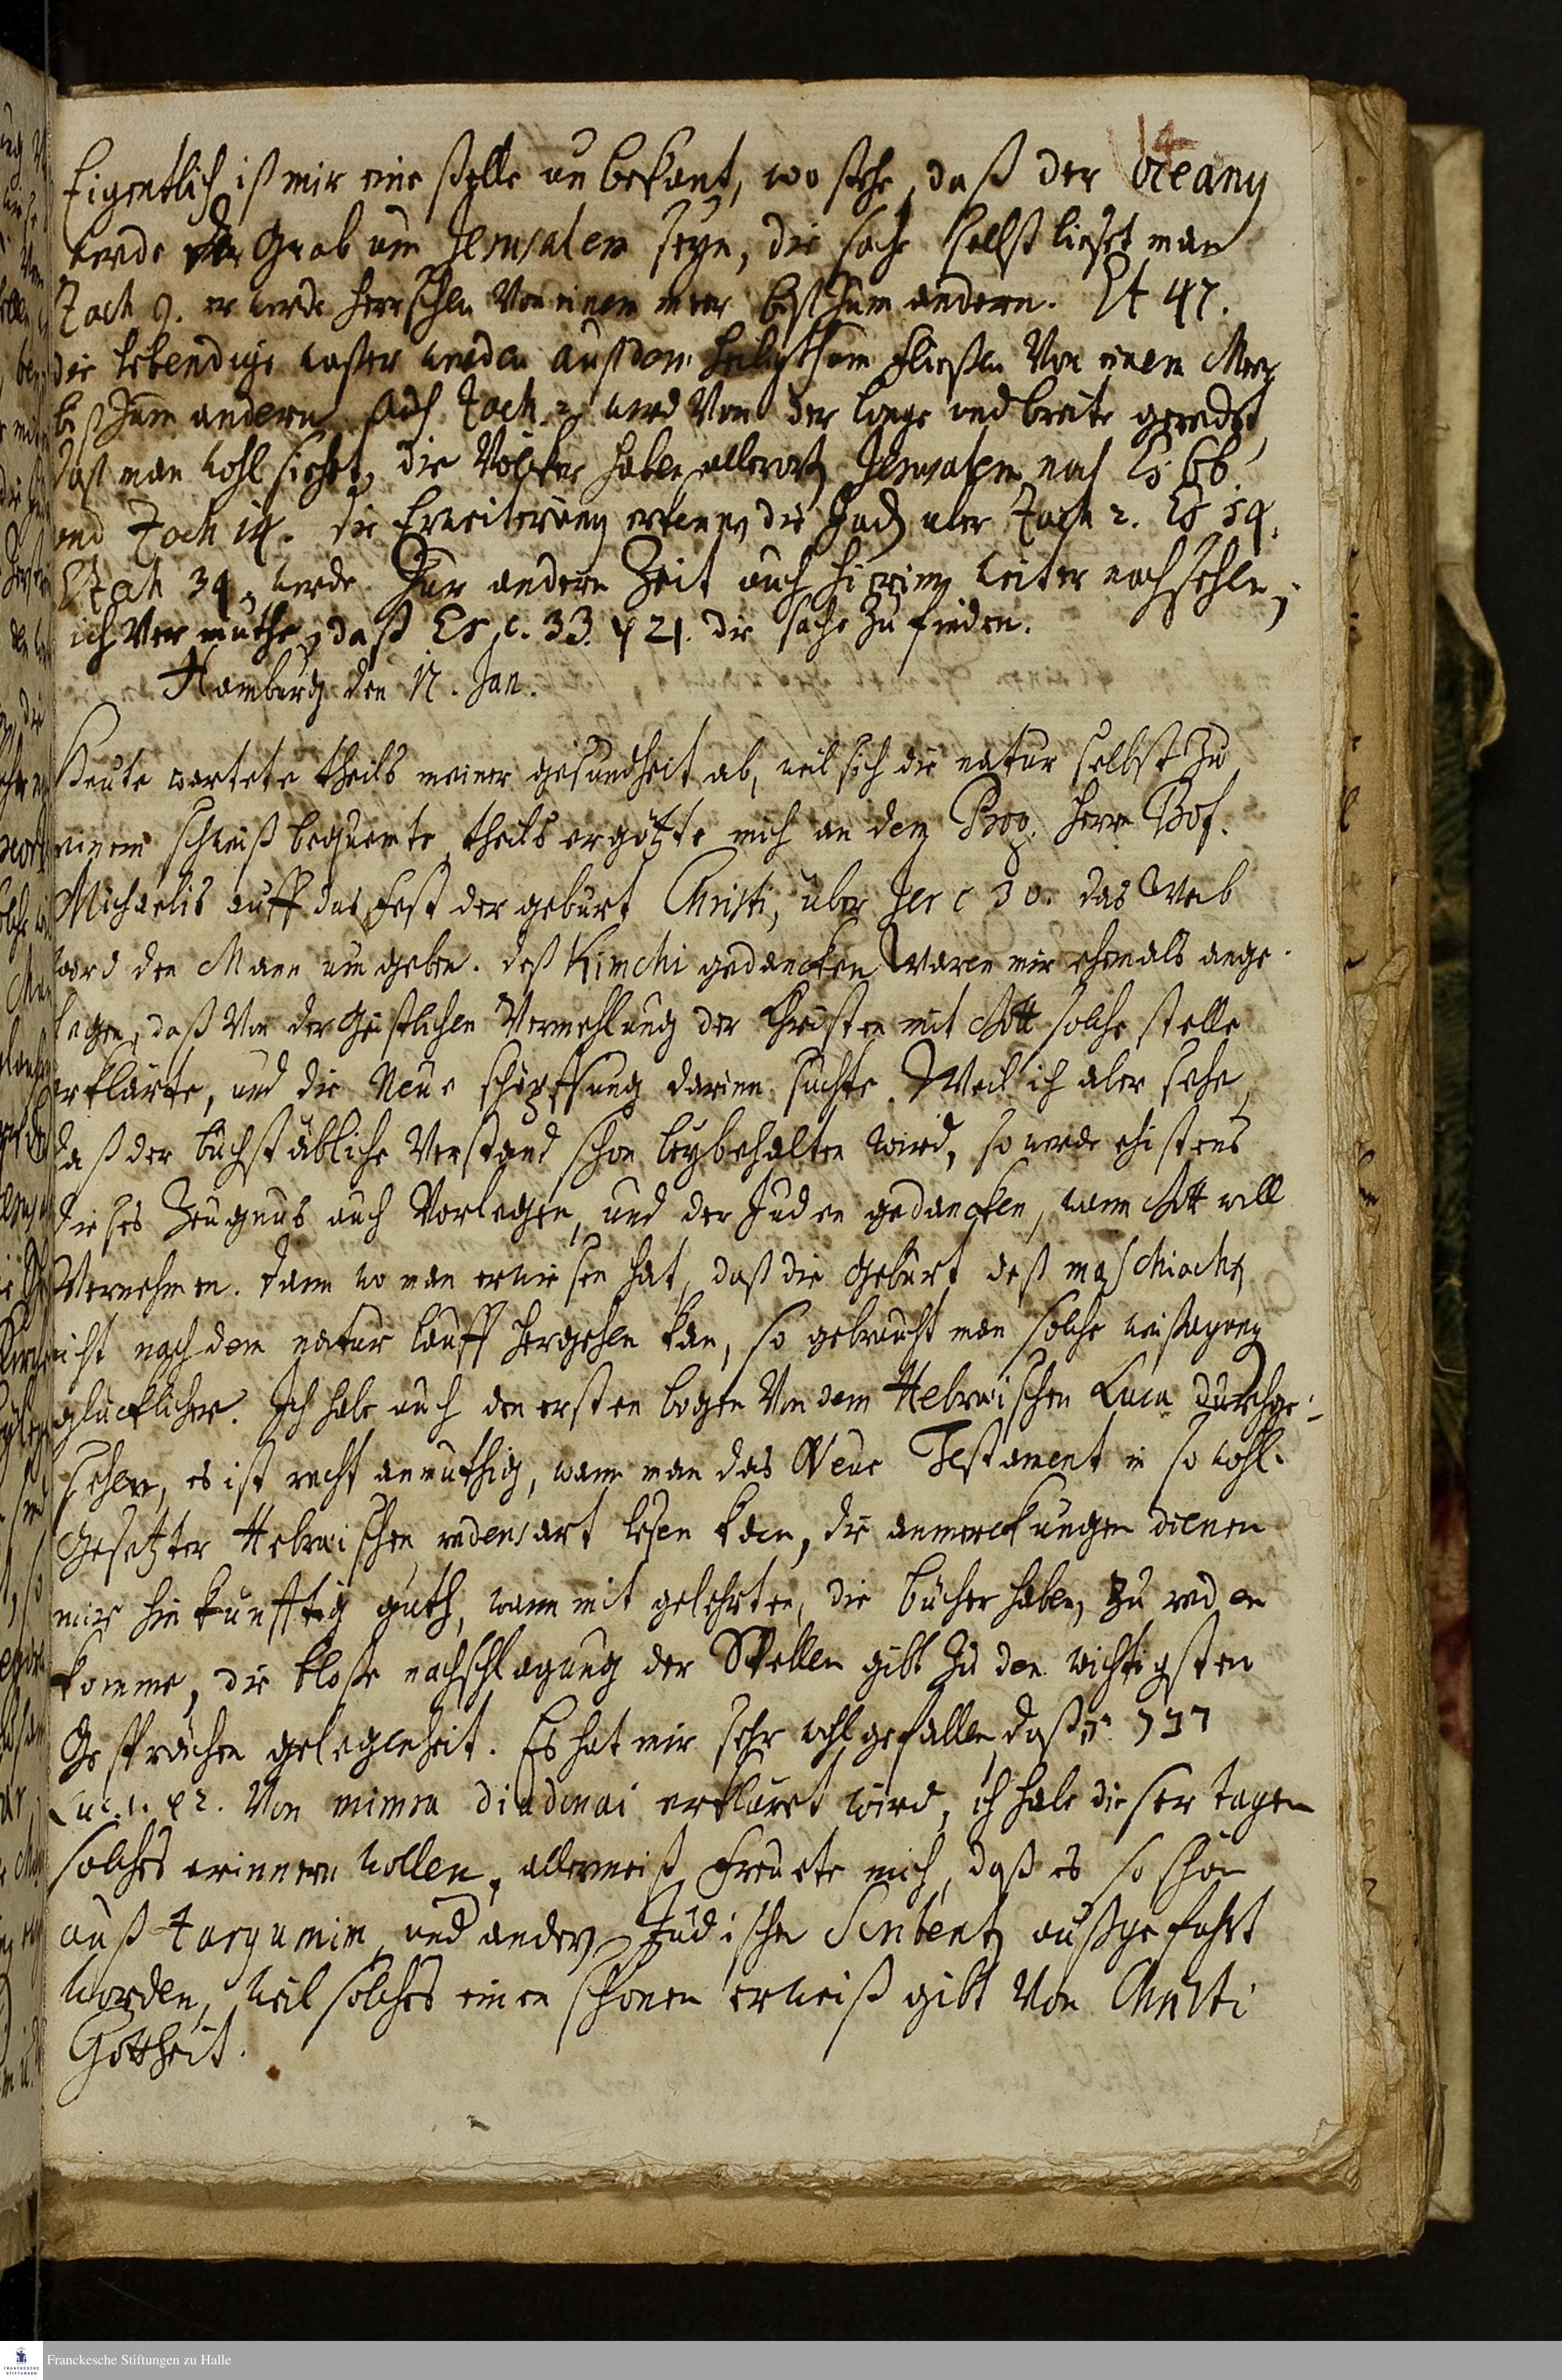 14
Eigentlich ist mir eine stelle unbekant, wo stehe, daß der Oceany
werde der Grab um Jerusalem seyn, die sache selbst lieset man
Zach 9. er werde herrschen Von einem meer biß zum andern. Et 47.
die lebendige waßer werden auß dem heiligthum fließen Von einem Meer
biß zum andern auch Zach. 2 wird Von der länge und breite geredet,
daß man wohl siehet, die Völcker haben allerorts Jerusalem nach Es. 66.
und Zach 14. die Erweiterung erkennen die Juden über Zach 2. Es 54.
Ezech 34. werde Zur andern Zeit auch hierinn weiter nachsehen,
ich Vermuthe, daß Es. c. 33. v 21. die sache zu finden.
Hamburg den 12. Jan.
Heute wartete theils meiner gesundheit ab, weil sich die natur selbst zu
einem schweiß bequemte, theils ergötzte mich an dem Prog. Herrn Prof.
Michaelis auff das Fest der geburt Christi, über Jer c 30. das Weib
ward den Mann umgeben. deß Kimchi gedancken waren mir ehemals ange-
legen, daß Von der Geistlichen Vermehlung der Christen mit Gott solche stelle
erklärte, und die Neue schöpffung darinn suchte. Weil ich aber sehe,
daß der buchstäbliche Verstand schon beybehalten wird, so werde ehistens
dieses Zeugnus auch Vorlegen, und der Juden gedancken, wann Gott will
Vernehmen. dann wo man erwiesen hat, daß die Geburt deß maschiachs
nicht nach dem natur lauff hergehen kan, so gebraucht man solche weißagung
glücklicher. Ich habe auch den ersten bogen Von dem Hebreischen Luca durchge-
sehen, es ist recht anmuthig, wann man das Neue Testament in so wohl-
Gesetzter Hebreischen redensart lesen kan, die anmerckungen dienen
mir hinkunfftig guth, wann mit gelehrten, die bücher haben, zu reden
komme, die bloße nachschlagung der Stellen gibt zu den wichtigsten
Gesprächen gelegenheit. Es hat mir sehr wohl gefallen, daß דבר
Luc. 1. v 2. Von mimra diadonai erkläret wird, ich habe dieser tagen
solches erinnern wollen, allermeist freuete mich, daß es so schön
auß targumim und andern Jüdischen außgefuhrt
worden, weil solches einen schönen erweiß gibt Von Christi
Gottheit.
Franckesche Stiftungen zu Halle